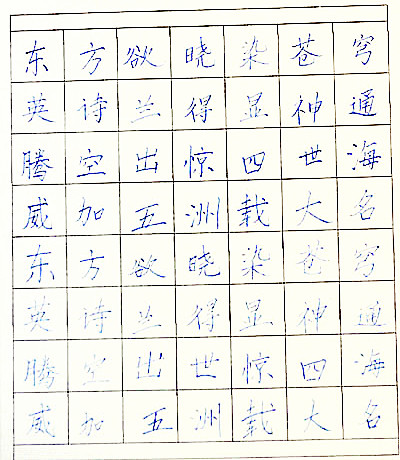 东方欲晓染苍穹
英诗兰得显神通
腾空出惊四世海
威加五洲载大名
东方欲晓染苍穹
英诗兰得显神通
腾空出世惊四海
威加五洲载大名